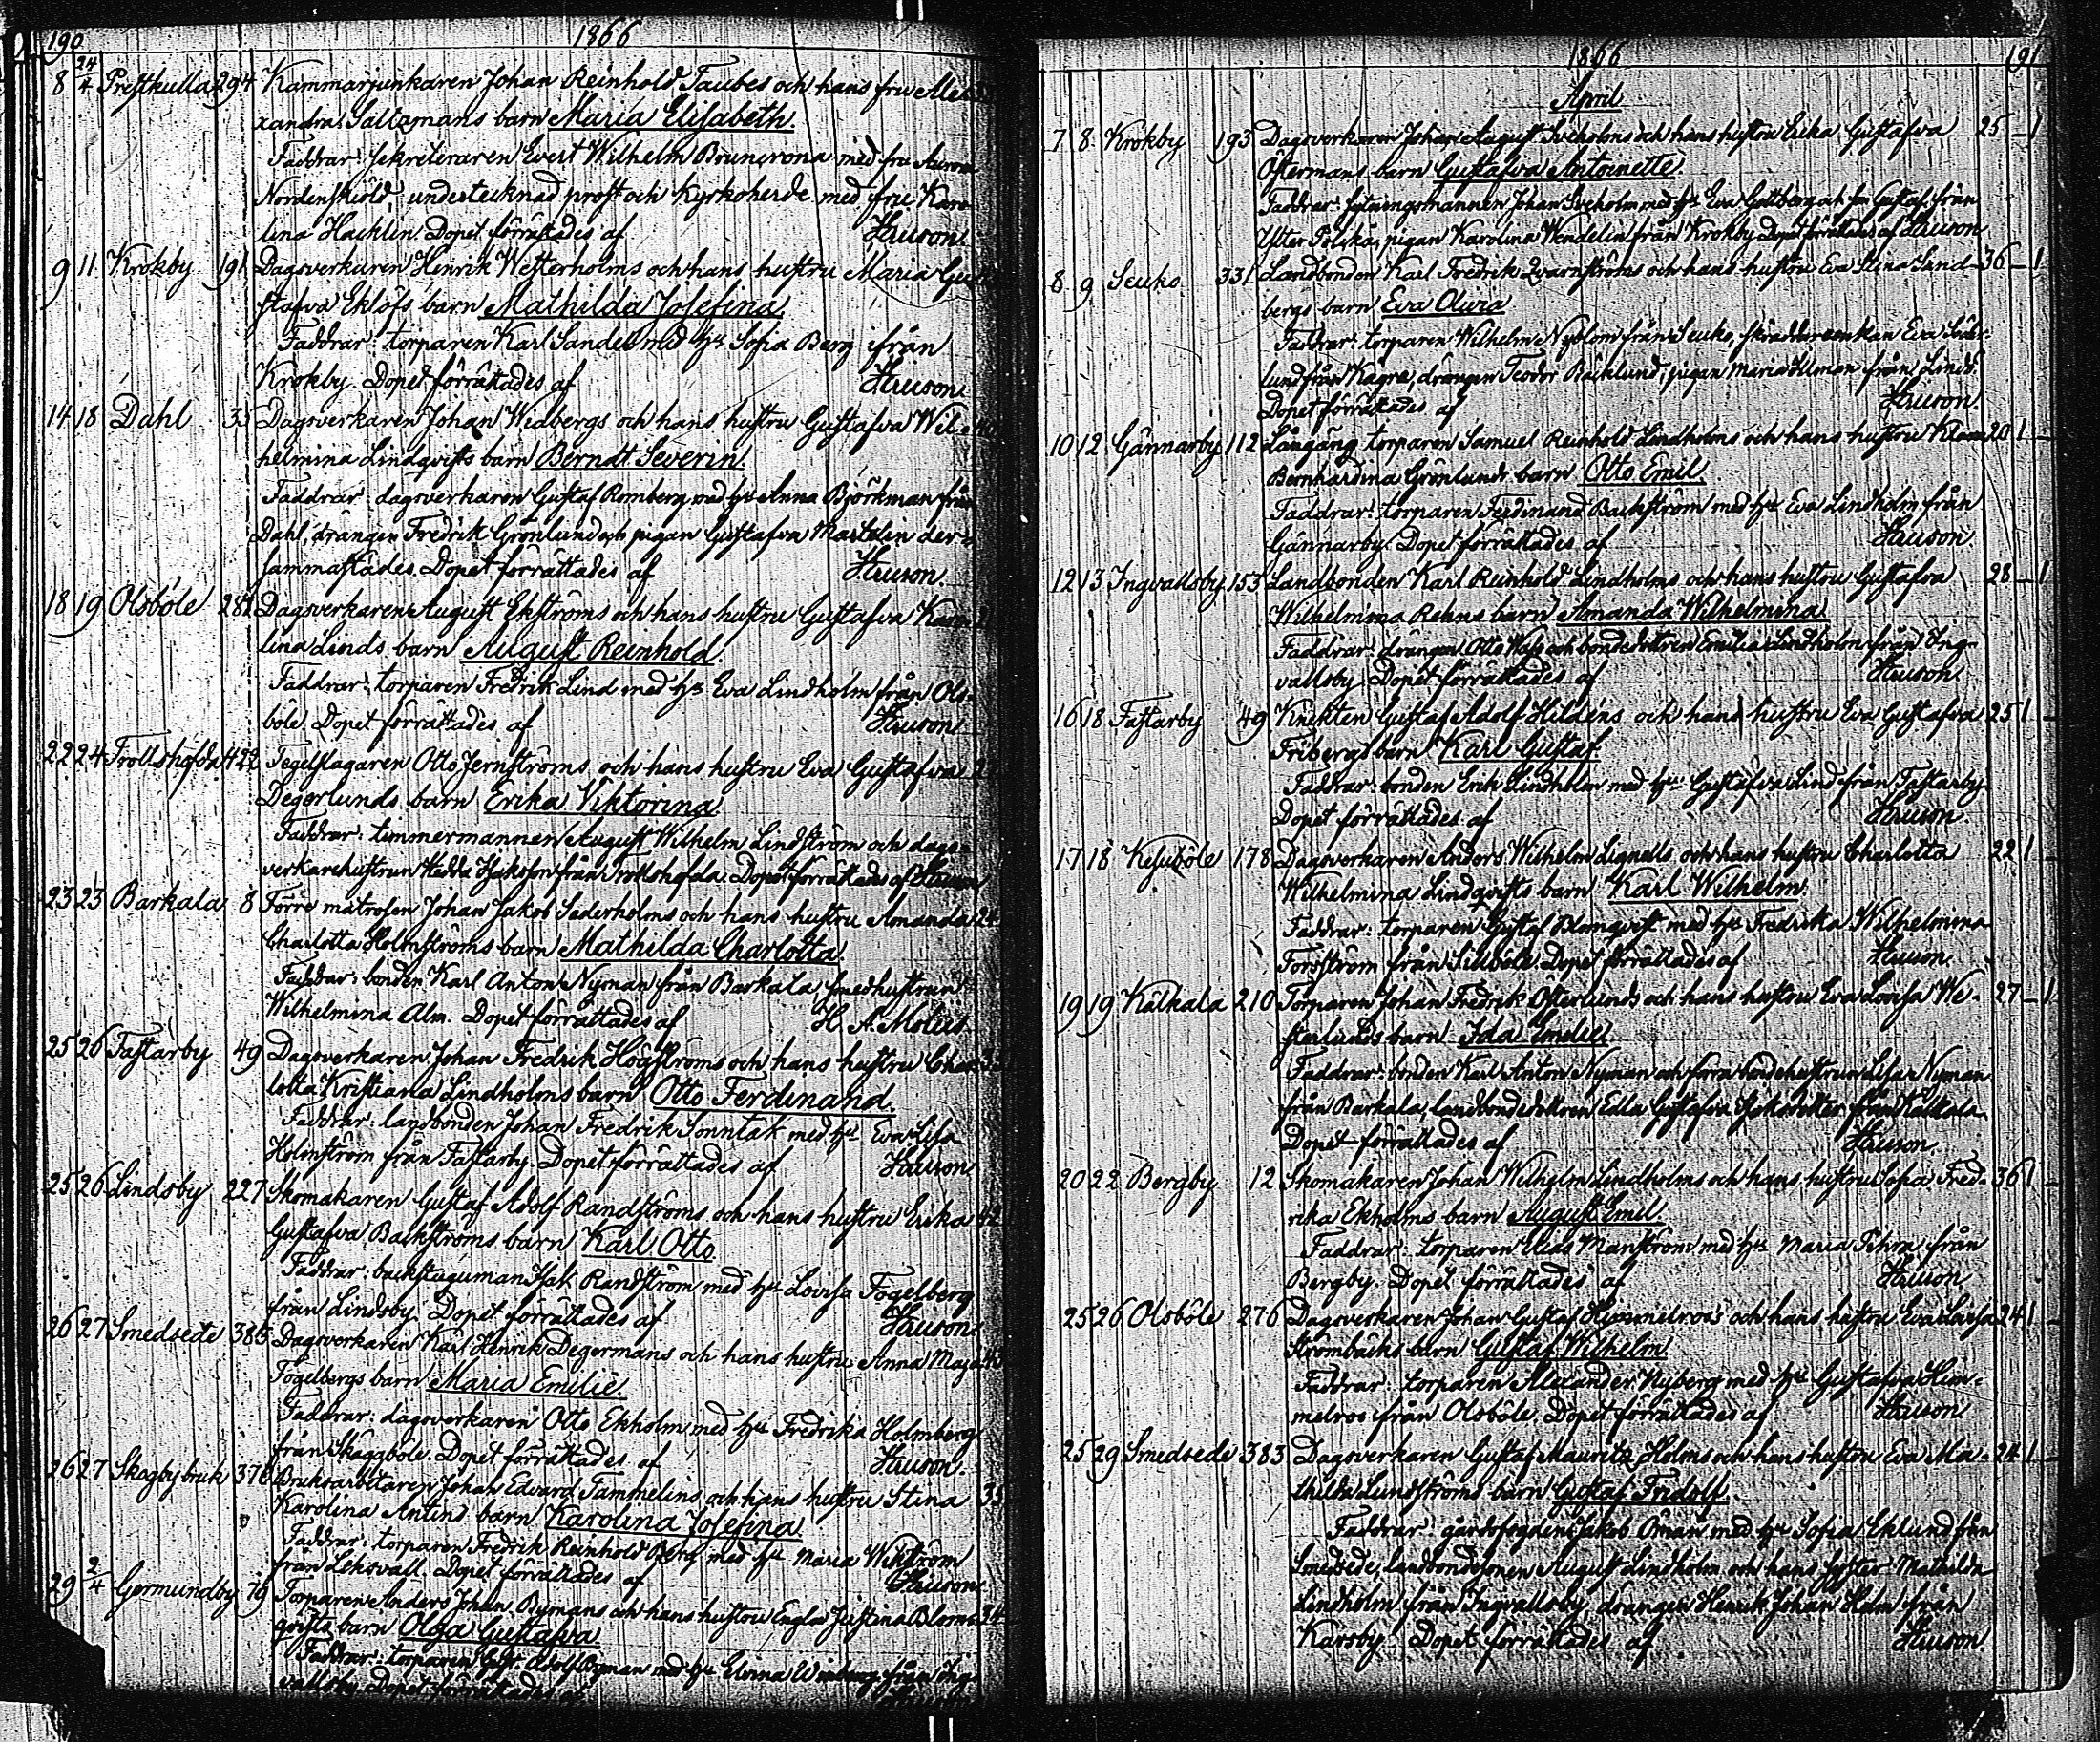 190
1866
8 24/4 Prestkulla 294 Kammarjunkaren Johan Reinhold Taubes och hans fru Alex
xandra Saltzmans barn Maria Elisabeth.
Faddrar: Sekreteraren Evert Wilhelm Bruncrona med fru Aurora
Nordenskiöld undertecknad prost och Kyrkoherde med fru Karo
lina Hacklin. Dopet förrättades af
9 11 Krokby 191 Dagsverkaren Henrik Westerholms och hans hustru Maria Gu
stafva Eklöfs barn Mathilda Josefina.
Faddrar: torparen Karl Sandel med hu Sofia Berg ifrån
Krokby. Dopet förrättades af
14 18 Dahl 35 Dagsverkaren Johan Widbergs och hans hustru Gustafva Wil-
helmina Lindqvists barn Berndt Severin.
Faddrar: dagsverkaren Gustaf Romberg med hu Anna Björkman från
Dahl, drängen Fredrik Grönlund och pigan Gustafva Martelin der-
sammastädes. Dopet förrättades af
18 19 Olsböle 282 Dagsverkaren August Ekströms och hans hustru Gustafva Karo
lina Linds barn August Reinhold.
Faddrar: torparen Fredrik Lind med hu Eva Lindholm från Ols-
böle. Dopet förrättades af
22 24 Trollshofda 422 Tegelslagaren Otto Jernströms och hans hustru Eva Gustafva
Degerlunds barn Erika Viktorina.
Faddrar: timmermannen August Wilhelm Lindström och dags-
verkarehustrun Hedda Isakson från Trollshofda. Dopet förrättades af
23 23 Barkala 8 Förre matrosen Johan Jakob Saderholms och hans hustru Amanda 24
Charlotta Holmströms barn Mathilda Charlotta.
Faddrar: bonden Karl Anton Nyman från Barkala smedhustrun
Wilhelmina Alm. Dopet förrättades af H. A. Molius
25 26 Fastarby 49 Dagsverkaren Johan Fredrik Högströms och hans hustru Char
lotta Kristiana Lindholms barn Otto Ferdinand.
Faddrar: landbonden Johan Fredrik Sonntak med hu Eva Lisa
Holmström från Fastarby. Dopet förrättades af
25 26 Lindsby 227 Skomakaren Gustaf Adolf Randströms och hans hustru Erika 42
Gustafva Backströms barn Karl Otto.
Faddrar: backstuguman Isak Randström med hu Lovisa Fogelberg
från Lindsby. Dopet förrättades af
26 27 Smedsede 385 Dagsverkaren Karl Henrik Degermans och hans hustru Anna Maja
Fogelbergs barn Maria Emilie.
Faddrar: dagsverkaren Otto Ekholm med hu Fredrika Holmberg
från Skäggböle. Dopet förrättades af
26 27 Skogby bruk 378 Bruksarbetaren Johan Edvard Tammelins och hans hustru Stina 35
Karolina Antins barn Karolina Josefina.
Faddrar: torparen Fredrik Reinhold Berg med hu Maria Wikström
från Leksvall. Dopet förrättades af
29 2/4 Germundby 79 Torparen Anders Johan Rymans och hans hustru Engla Justina Blom 34
qvists barn Olga Gustafva
Faddrar: torparen Adolf Ryman med hu Elvina Winberg från Ing-
vallsby. Dopet förrättades af
1866 191
April
7 8 Krokby 193 Dagsverkaren Johan August Sveholms och hans hustru Erika Gustafva 25 – 1
Östermans barn Gustafva Antoinette.
Faddrar: sytningsmannen Johan Sveholm med hu Eva Gottberg och son Gustaf från
Ytter Tolska, pigan Karolina Wendelin från Krokby. Dopet förrättades af
8 9 Seuko 331 Landbonden Karl Fredrik Qvarnströms och hans hustru Eva Stina Sand- 36 – 1
bergs barn Eva Olivia
Faddrar: torparen Wilhelm Nyblom från Seuko, skräddareenkan Eva Söder-
lund från Kagra, drängen Teodor Bäcklund, pigan Maria Ullman från Linds.
Dopet förrättades af
10 12 Gännarby 112 Långäng torparen Samuel Reinhold Lindholms och hans hustru Klara 20 1 –
Bernhardina Grönlunds barn Otto Emil.
Faddrar: torparen Ferdinand Backström med hu Eva Lindholm från
Gännarby. Dopet förrättades af
12 13 Ingvallsby 153 Landbonden Karl Reinhold Lindholms och hans hustru Gustafva 28 – 1
Wilhelmina Rehns barn Amanda Wilhelmina.
Faddrar: drängen Otto Wass och bondedottren Emilia Lindholm från Ing-
vallsby. Dopet förrättades af
16 18 Fastarby 49 Knekten Gustaf Adolf Hildéns och hans hustru Eva Gustafva 25 1 –
Fribergs barn Karl Gustaf
Faddrar: bonden Erik Lindholm med hu Gustafva Lind från Fastarby.
Dopet förrättades af
17 18 Kesuböle 178 Dagsverkaren Anders Wilhelm Lignells och hans hustru Charlotta 22 1 –
Wilhelmina Lindqvists barn Karl Wilhelm.
Faddrar: torparen Gustaf Blomqvist med hu Fredrika Wilhelmina
Forsström från Sidböle. Dopet förrättades af
19 19 Kalkala 210 Torparen Johan Fredrik Österlunds och hans hustru Eva Lovisa We- 27 – 1
sterlunds barn Ida Emelie.
Faddrar: bonden Karl Anton Nyman och förra bondehustrun Lisa Nyman
från Barkala, landbondedottren Edla Gustafva Isaksdotter från Kalkala.
Dopet förrättades af
20 22 Bergby 12 Skomakaren Johan Wilhelm Lindholms och hans hustru Sofia Fred- 36 1 –
rika Ekholms barn August Emil.
Faddrar: torparen Elias Manström med hu Maria från
Bergby. Dopet förrättades af
25 26 Olsböle 276 Dagsverkaren Johan Gustaf Himmelroos och hans hustru Eva Lovisa 24 1 –
Strömbäcks barn Gustaf Wilhelm.
Faddrar: torparen Alexander Nyberg med hu Gustafva Him-
melros från Olsböle. Dopet förrättades af
25 29 Smedsede 383 Dagsverkaren Gustaf Mauritz Holms och hans hustru Eva Ma- 24 1 –
thilda Lundströms barn Gustaf Fridolf.
Faddrar: gårdsfogden Jakob Öman med hu Sofia Eklund från
Smedsede, landbondesonen August Lindholm och hans syster Mathilda
Lindholm från Ingvallsby, drängen Henrik Johan Holm från
Karsby. Dopet förrättades af